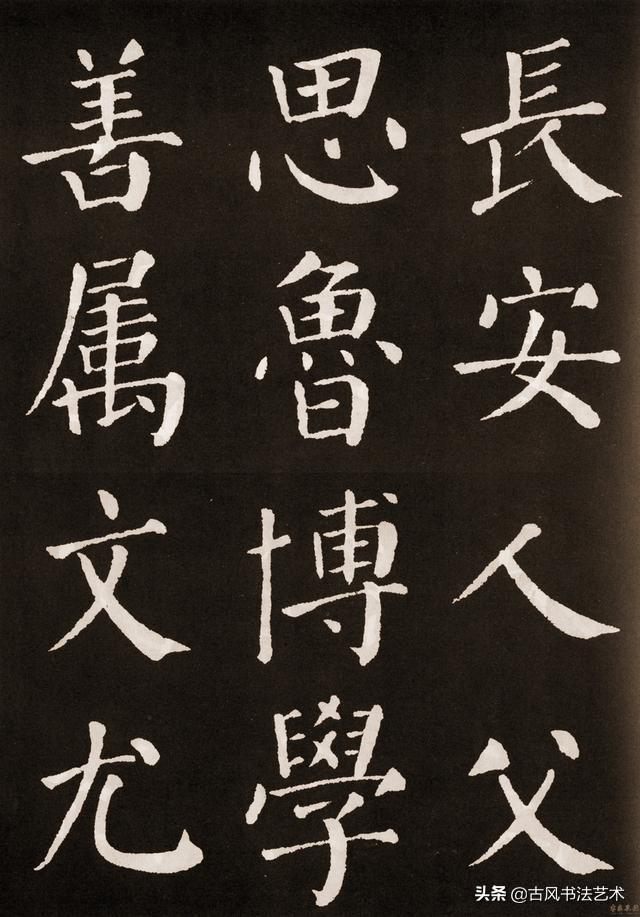 長安人父
思魯博學
善属文尤
头条@古风书法艺术